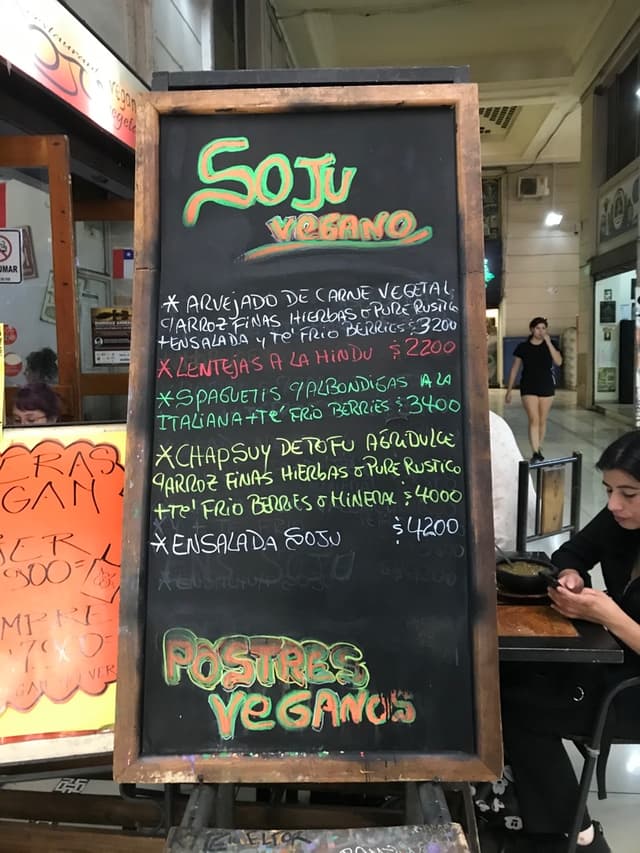 SOJU
VEGANO
* ARVEJADO DE CARNE VEGETAL
C/ARROZ FINAS HIERBAS O PURE RUSTICO
+ENSALADA Y TE' FRIO BERRIES $3200
* LENTEJAS A LA HINDU $2200
* SPAGUETIS C/ALBONDIGAS A LA
ITALIANA + TE' FRIO BERRIES $3400
* CHAPSUY DE TOFU AGRIDULCE
C/ARROZ FINAS HIERBAS O PURE RUSTICO
+TE' FRIO BERRIES O MINERAL $4000
* ENSALADA SOJU $4200
POSTRES
VEGANOS